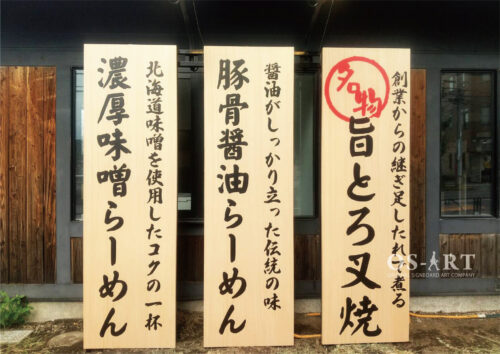 創業からの継ぎ足したれで煮る
名物
旨とろ叉焼
醤油がしっかり立った伝統の味
豚骨醤油らーめん
北海道味噌を使用したコクの一杯
濃厚味噌らーめん
S-ART
SIGNBOARD ART COMPANY